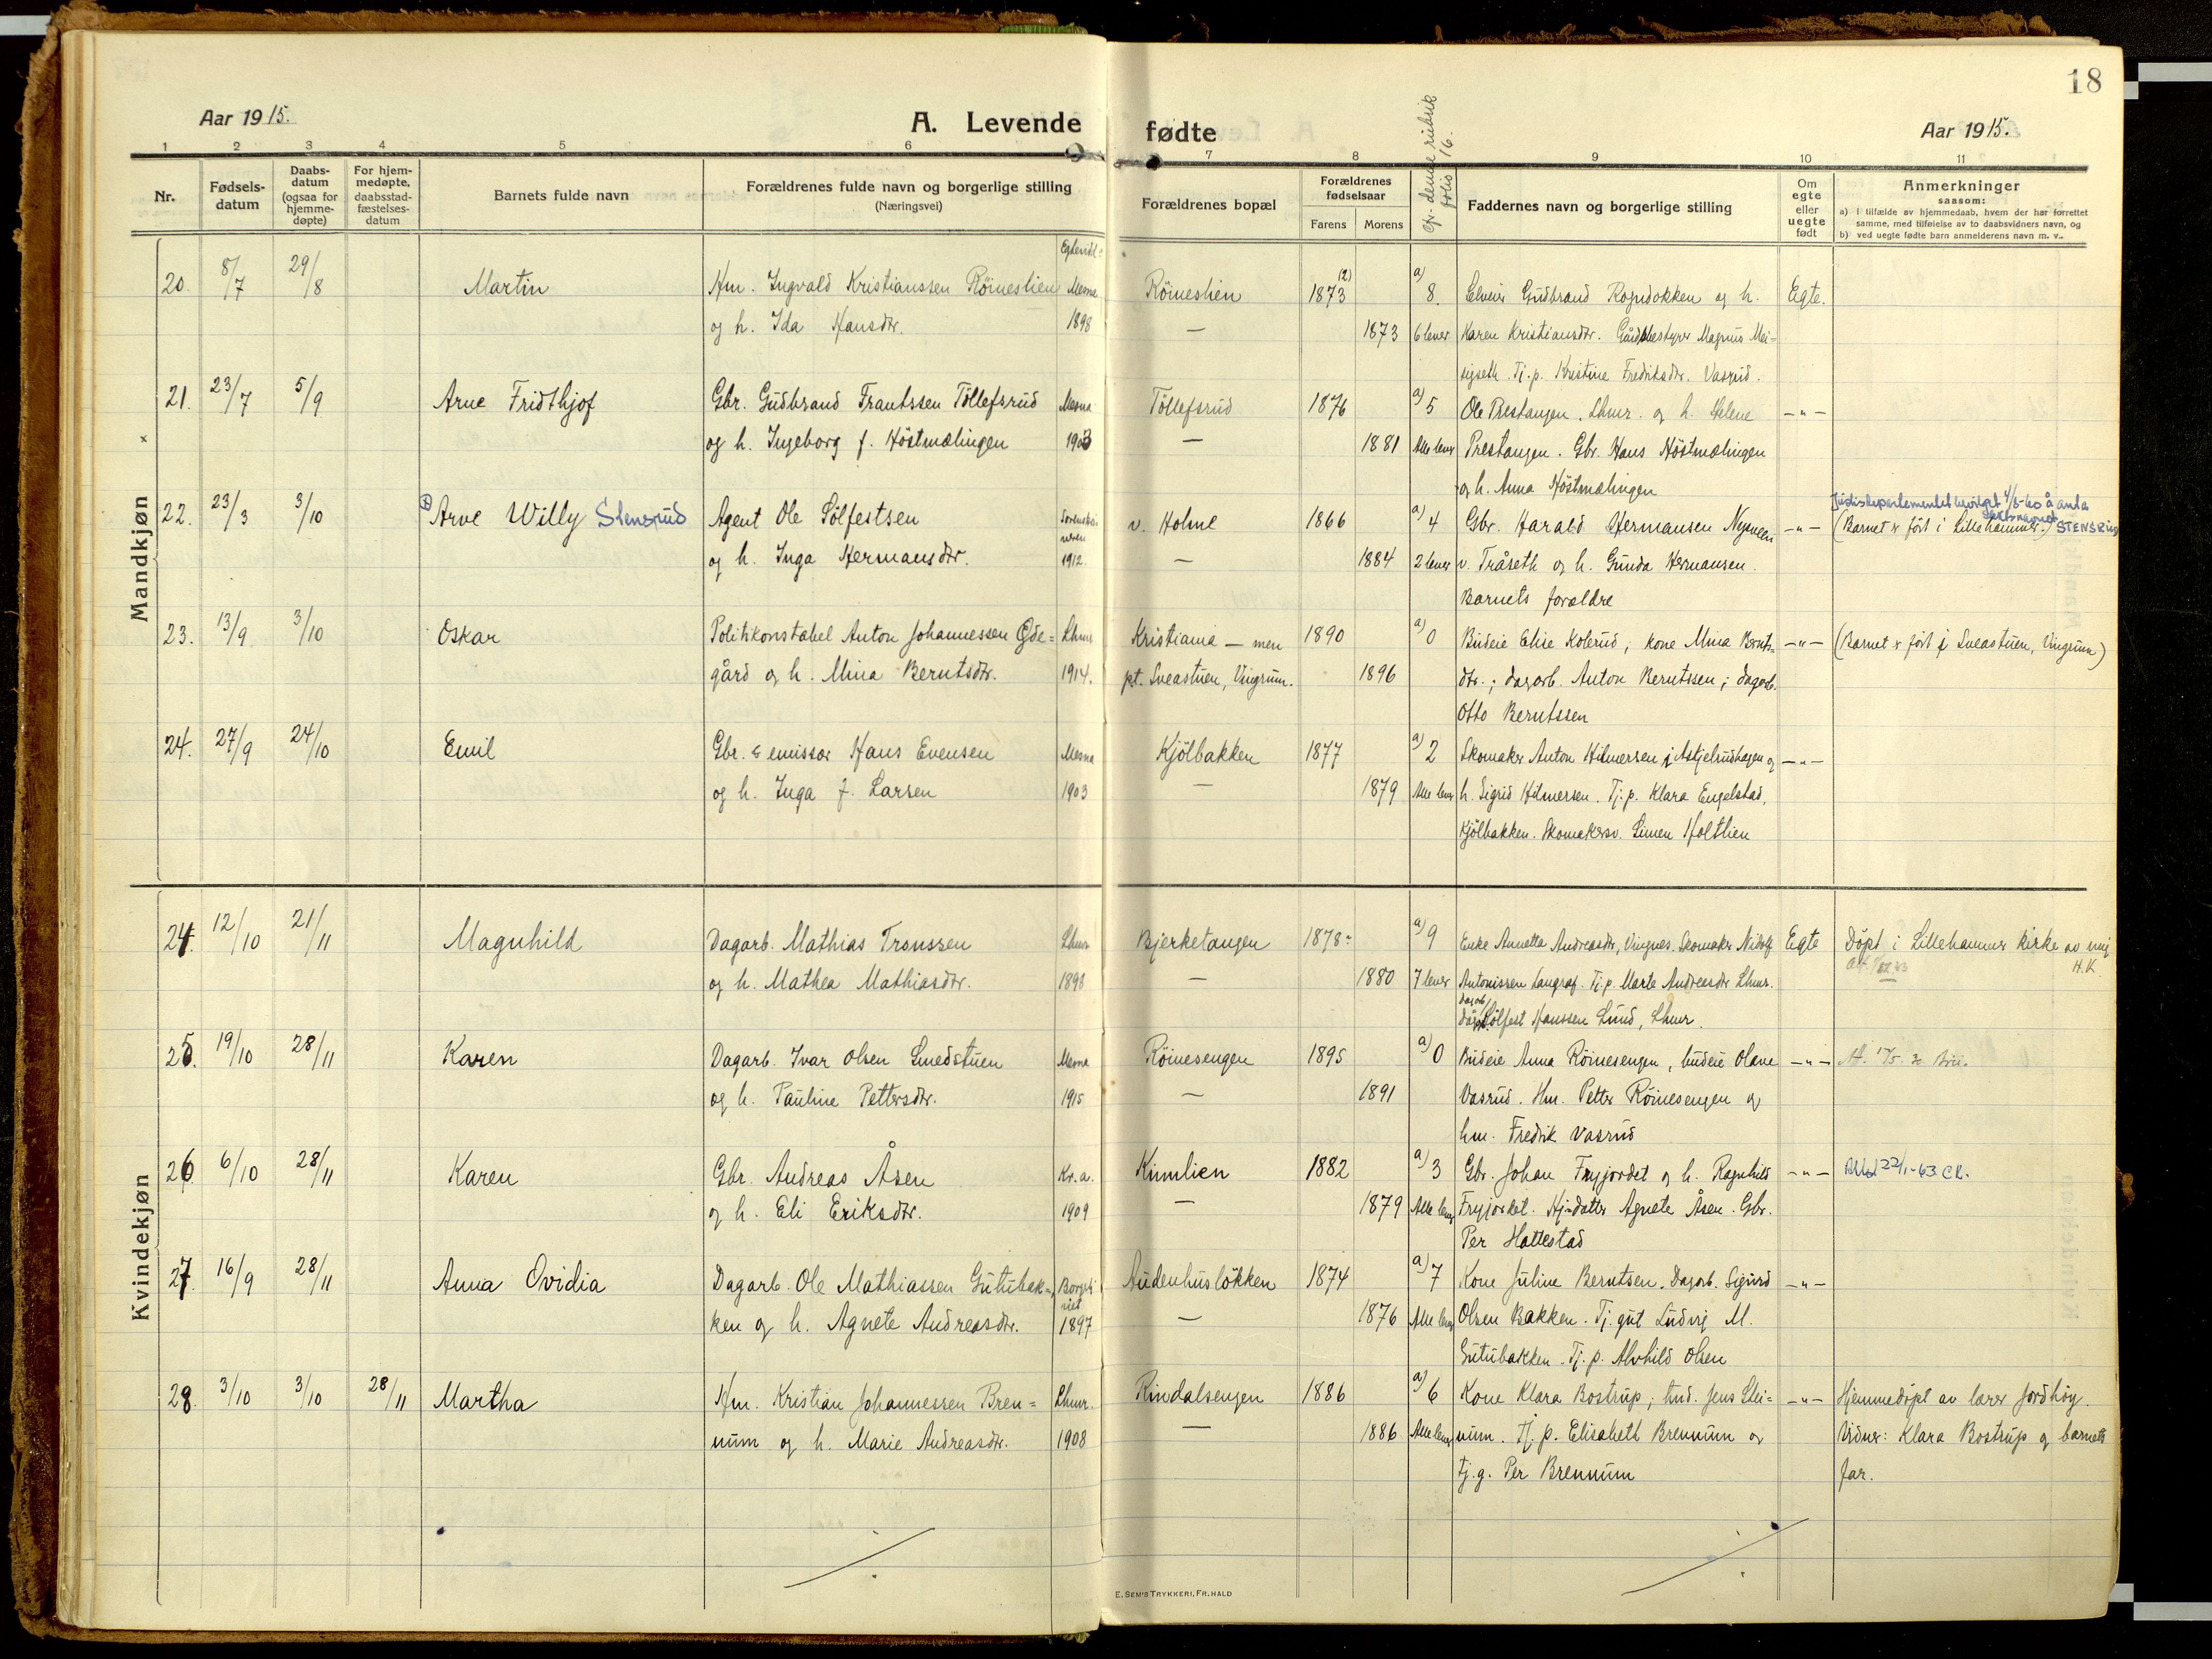 18
Aar 1915.
A. Levende
fødte
Aar 1915.
cfr. denne rubrik folio 16.
1 2 3 4 5 6 7 8 9 10 11
Nr.
Fødsels-datum
Daabs-datum (ogsaa for hjemme-døpte)
For hjem-medøpte, daabsstad-fæstelses-datum
Barnets fulde navn
Forældrenes fulde navn og borgerlige stilling
(Næringsvei)
Forældrenes bopæl
Forældrenes fødselsaar
Farens Morens
Faddernes navn og borgerlige stilling
Om egte eller uegte født
Anmerkninger
saasom:
a) i tilfælde av hjemmedaab, hvem der har forrettet samme, med tilføielse av to daabsvidners navn, og
b) ved uegte fødte barn anmelderens navn m. v.
Mandkjøn
20. 8/7 29/8 Martin Hm. Ingvald Kristianssen Röineslien Mesna Röineslien 1873 (2) a) 8. Gudbrand og h. Egte.
og h. Ida Hansdtr. 1898 — 1873 6 lever Karen Kristiansdtr. Gårdbestyrer Magnus Mei=
sigseth. Tj. p. Kristine Fredriksdtr. Vasrud.
21. 23/7 5/9 Arne Fridthjof Gbr. Gudbrand Frantssen Töllefsrud Mesna Töllefsrud 1876 a) 5 Ole Prestangen. Lhmr. og h. Helene —"—
x og h. Ingeborg f. Höstmælingen 1903 — 1881 Alle lever Prestangen. Gbr. Hans Höstmælingen
og h. Anna Höstmælingen
22. 23/3 3/10 Arve Willy Stensrud Agent Ole Sölfestsen v. Holme 1866 a) 4 Gbr. Harald Hermansen —"— (Barnet er födt i Lillehammer.)
Justisdepartementet bevilget 4/5-60 å anta slektsnavnet STENSRUD
og h. Inga Hermansdtr. 1912. — 1884 2 lever v. Tråseth og h. Gunda Hermansen.
Barnets forældre
23. 13/9 3/10 Oskar Politikonstabel Anton Johannessen Öde= Lhmr. Kristiania — men 1890 a) 0 Budeie Elise Kolerud; kone Mina Bernt= —"— (Barnet er födt i Sveastuen, Vingrum)
gård og h. Mina Berntsdtr. 1914. pt. Sveastuen, Vingrum. 1896 dtr.; dagarb. Anton Berntssen; dagarb.
Otto Berntssen
24. 27/9 24/10 Emil Gbr. & emissær Hans Evensen Mesna Kjölbakken 1877 a) 2 Skomaker Anton Hilmersen i Astjelrudhagen og —"—
og h. Inga f. Larsen 1903 — 1879 Alle lever h. Sigrid Hilmersen. Tj. p. Klara Engelstad,
Kjölbakken. Skomakersv. Simen Holtlien
Kvindekjøn
24. 12/10 21/11 Magnhild Dagarb. Mathias Tronssen Lhmr Bjerketangen 1878 a) 9 Enke Annette Andreasdtr, Vingnes. Skomaker Nidolf Egte Döpt i Lillehammer kirke av mig
H.K.
og h. Mathea Mathiasdtr. 1898 — 1880 7 lever Antonissen Langraf. Tj. p. Marte Andreasdtr Lhmr.
dagarb. Sölfest Hanssen Lund, Lhmr.
25. 19/10 28/11 Karen Dagarb. Ivar Olsen Smedstuen Mesna Röinesengen 1895 a) 0 Budeie Anna Röinesengen, budeie Olave —"—
og h. Pauline Pettersdtr. 1915 — 1891 Vasrud. Hm. Petter Röinesengen og
hm. Fredrik Vasrud
26. 6/10 28/11 Karen Gbr. Andreas Åsen Kr.a. Kimlien 1882 a) 3 Gbr. Johan Fryjordet og h. Ragnhild —"— 22/1-63 CR.
og h. Eli Eriksdtr. 1909 — 1879 Alle lever Fryjordet. Hj. datter Agnete Åsen. Gbr.
Per Hattestad
27. 16/9 28/11 Anna Ovidia Dagarb. Ole Mathiassen Gutubak= Audenhuslökken 1874 a) 7 Kone Juline Berntsen. Dagarb. Sigurd —"—
ken og h. Agnete Andreasdtr. 1897 — 1876 Alle lever Olsen Bakken. Tj. gut Ludvig M.
Gutubakken. Tj. p. Alvhild Olsen
28. 3/10 3/10 28/11 Martha Hm. Kristian Johannessen Bren= Lhmr. Rindalsengen 1886 a) 6 Kone Klara Bostrup; tmd. Jens Slei= —"— Hjemmedöpt av lærer Jordhöy.
num og h. Marie Andreasdtr. 1908 — 1886 Alle lever num. Tj. p. Elisabeth Brennum og Vidner: Klara Bostrup og barnets
tj. g. Per Brennum far.
E. SEM'S TRYKKERI, FR. HALD